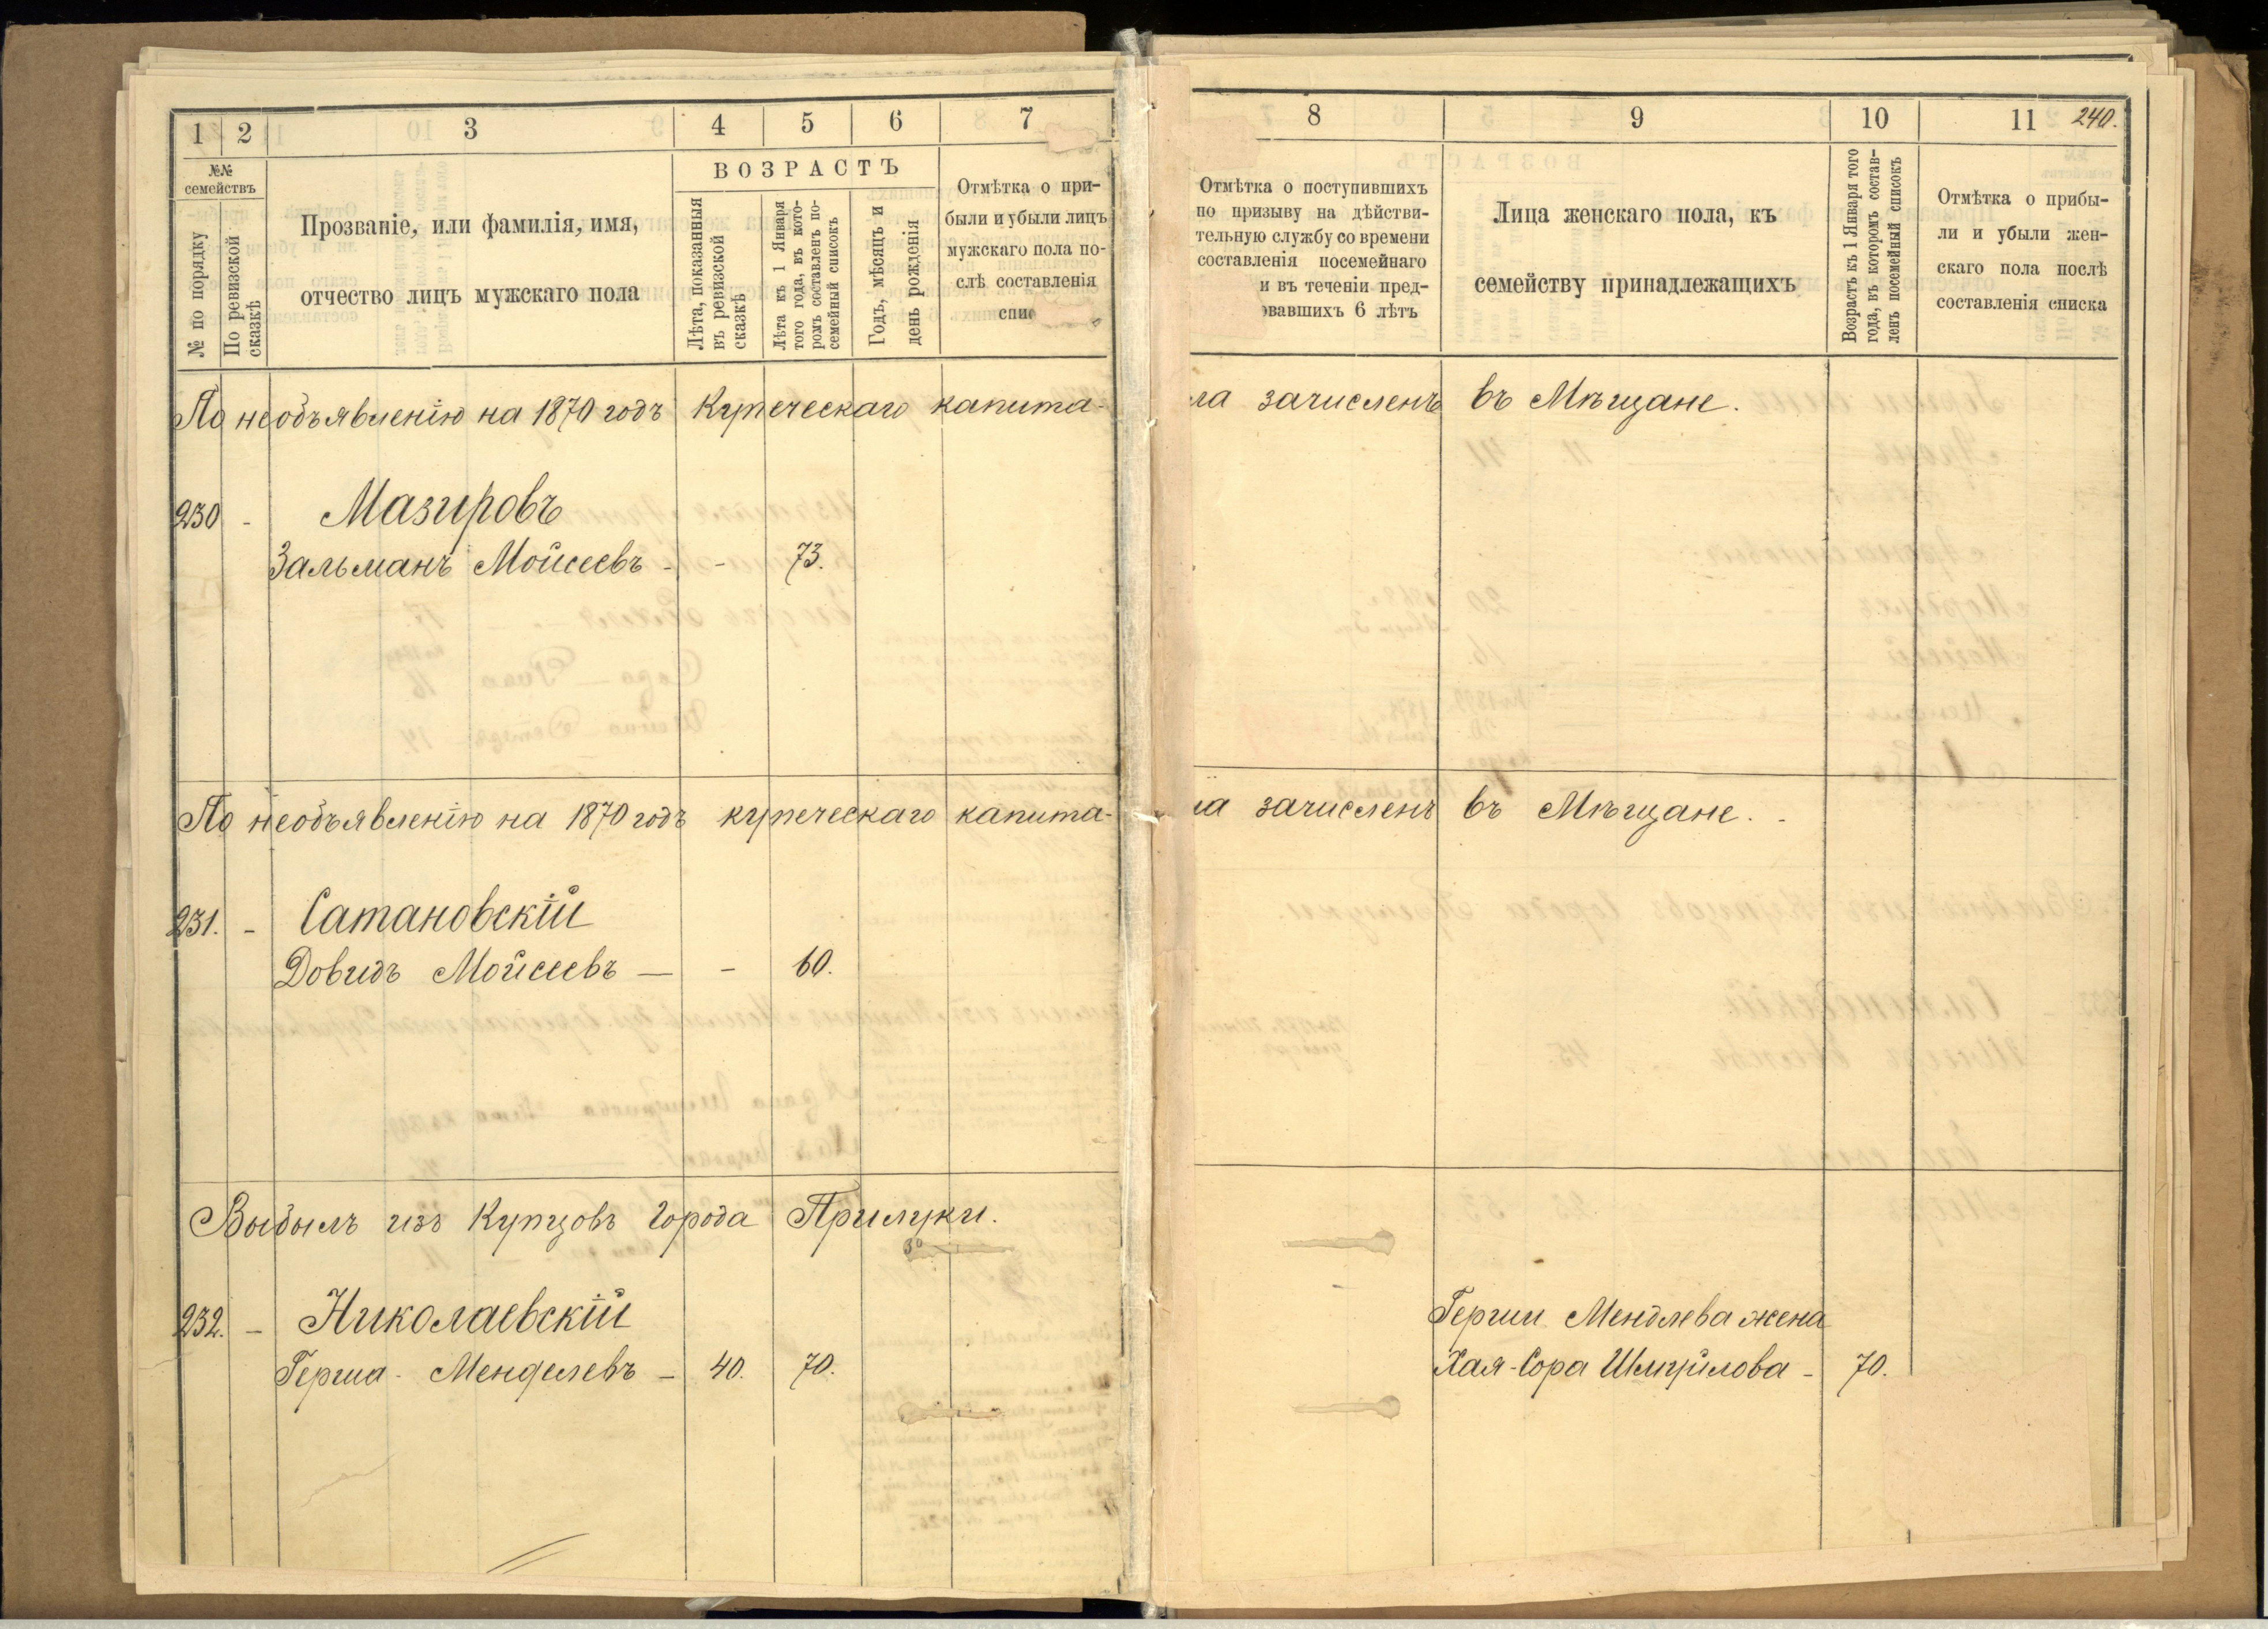 1 2 3 4 5 6 7 8 9 10 11 240.
№№ семействъ
№ по порядку
По ревизской сказкѣ
Прозваніе, или фамилія, имя,
отчество лицъ мужскаго пола
ВОЗРАСТЪ
Лѣта, показанныя
въ ревизской
сказкѣ
Лѣта къ 1 Января
того года, въ кото-
ромъ составленъ по-
семейный списокъ
Годъ, мѣсяцъ и
день рожденія
Отмѣтка о при-
были и убыли лицъ
мужскаго пола по-
слѣ составленія
спис
Отмѣтка о поступившихъ
по призыву на дѣйстви-
тельную службу со времени
составленія посемейнаго
и въ теченіи пред-
вовавшихъ 6 лѣтъ
Лица женскаго пола, къ
семейству принадлежащихъ
Возрастъ къ 1 Января того
года, въ которомъ состав-
ленъ посемейный списокъ
Отмѣтка о прибы-
ли и убыли жен-
скаго пола послѣ
составленія списка
По необъявленію на 1870 годъ Купеческаго капита-ла зачисленъ въ Мѣщане.
230 - Мазировъ
Зальманъ Мойсеевъ - - 73.
По необъявленію на 1870 годъ купеческаго капита-ла зачисленъ въ Мѣщане.
231. - Сатановскій
Довидъ Мойсеевъ — - 60.
Выбылъ изъ Купцовъ Города Прилуки.
232. - Николаевскій
Герша - Менделевъ - 40. 70.
Герши Мендлева жена
Хая-Сора Шмуйлова - 70.